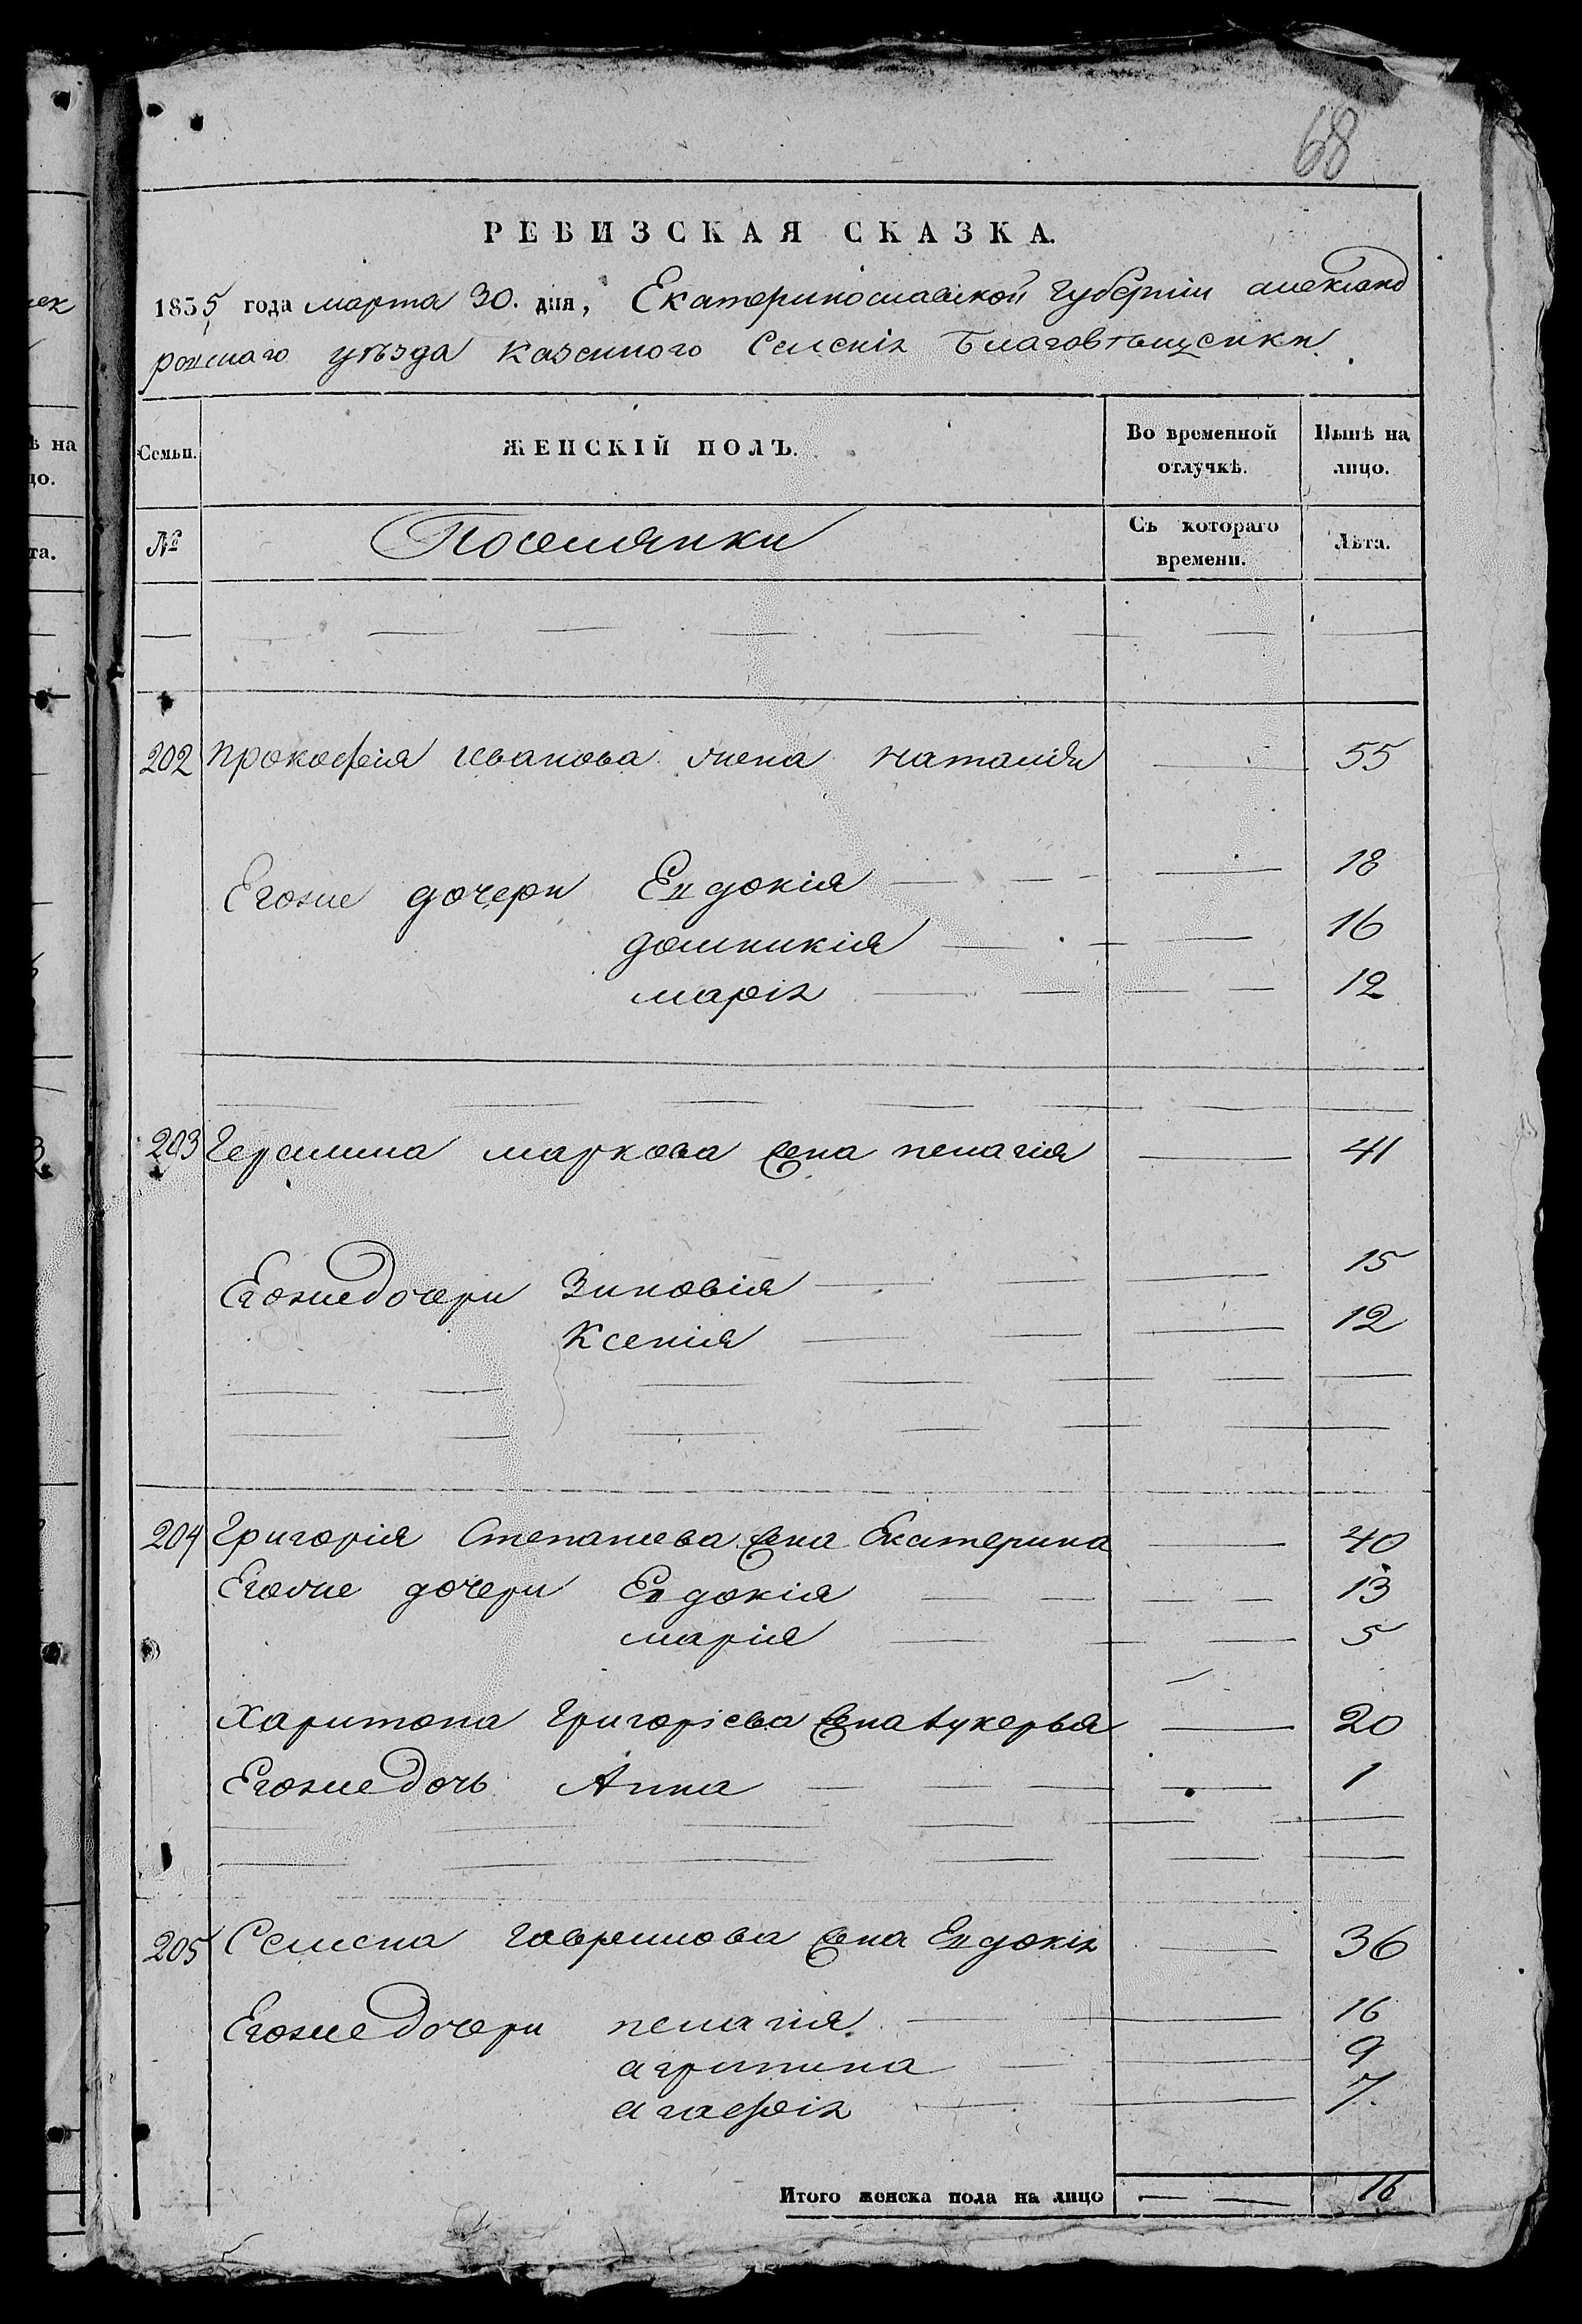 68
РЕВИЗСКАЯ СКАЗКА.
1835 года марта 30. дня, Екатеринославской губерніи александ
ровскаго уѣзда казенного Селенія Благовѣщенки.
Семьи. ЖЕНСКІЙ ПОЛЪ. Во временной отлучкѣ. Нынѣ на лицо.
№ Поселянки Съ котораго времени. Лѣта.
202 Прокофія Иванова жена наталія 55
Егоже дочери Евдокія 18
домникія 16
марія 12
203 Герасима маркова жена пелагія 41
Егоже дочери Зиновія 15
Ксенія 12
204 Григорія Степанова жена Екатерина 40
Егоже дочери Евдокія 13
марія 5
Харитона Григоріева жена лукерья 20
Егоже дочь Анна 1
205 Семена гаврилова жена Евдокія 36
Егоже дочери пелагія 16
агрипина 9
агафія 7.
Итого женска пола на лицо 16